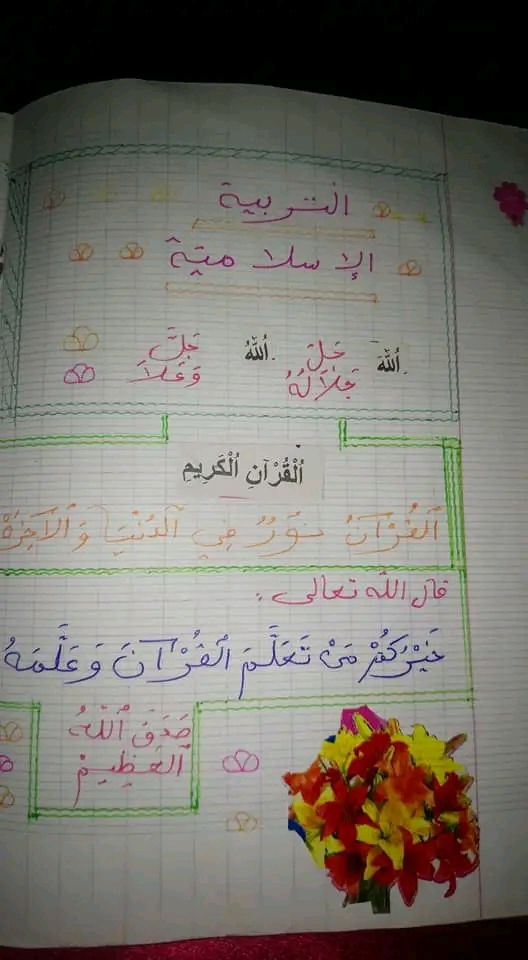 التربية
الإسلامية
اُللَّهُ جَلَّ جَلَالُهُ اُللَّهُ جَلَّ وَعَلَا
اُلْقُرْآنِ اُلْكَرِيمِ
اَلقُرْآنُ نُورٌ فِي اَلدُنْيَا وَاَلآخِرَةْ
قال الله تعالى :
خَيْرُكُمْ مَنْ تَعَلَّمَ القُرْآنَ وَعَلَّمَهُ
صَدَقَ اَللَّهُ
اَلعَظِيمْ